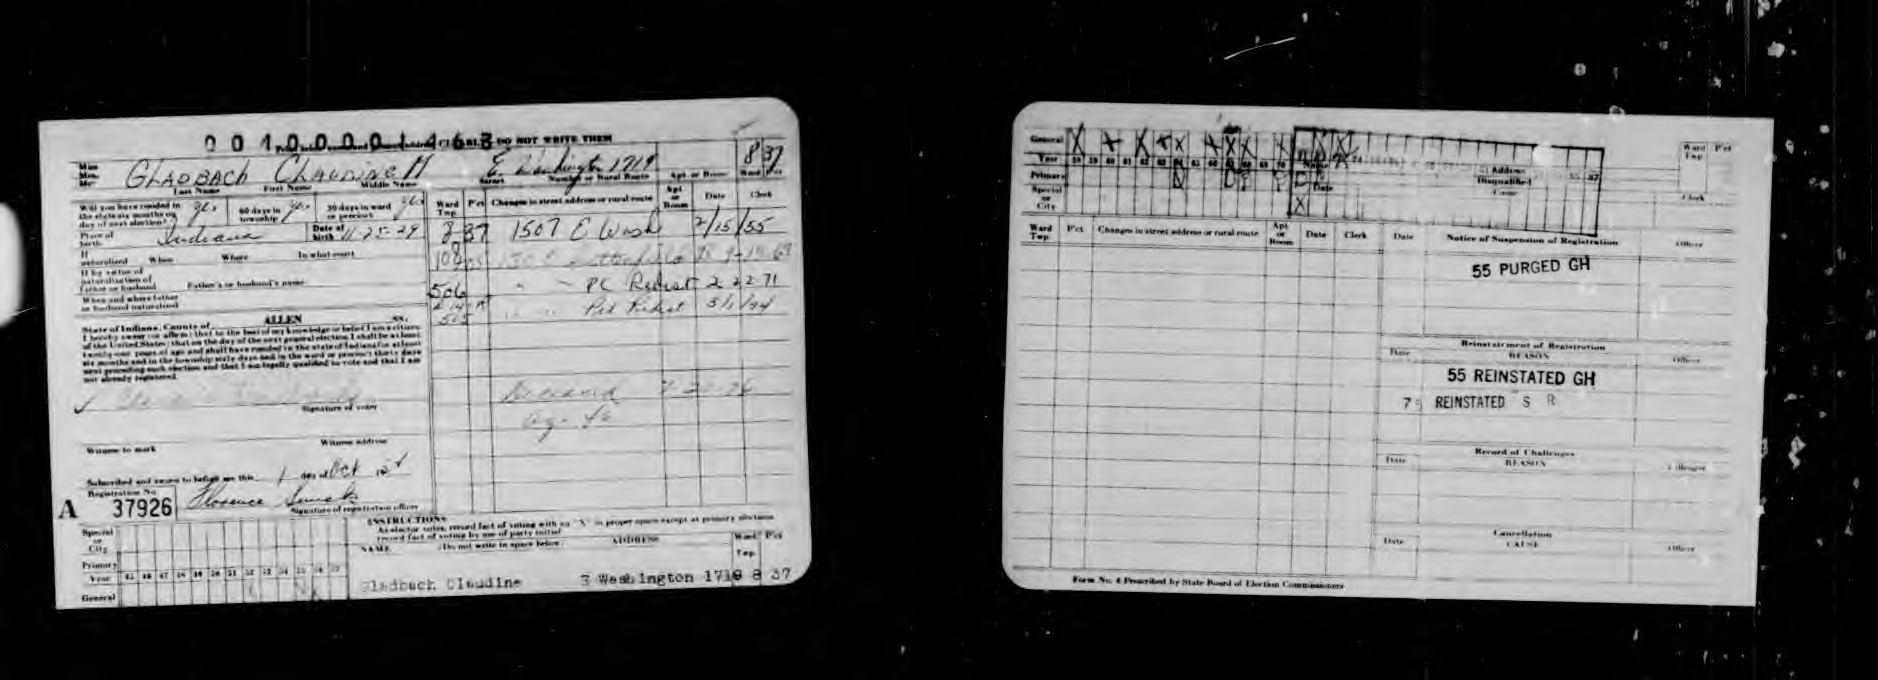 00100001463
CLEARLY DO NOT WRITE THEM
Miss
Mrs.
Mr.
GLADBACH CLAUDINE M E. Washington 1719 8 37
Last Name First Name Middle Name Street Number or Rural Route Apt. or Room Ward Pct
Will you have resided in the state six months on day of next election? yes 60 days in township yes 30 days in ward or precinct yes
Place of birth Indiana Date of birth 11-25-29
If naturalized When Where In what court
If by virtue of naturalization of father or husband Father's or husband's name
When and where father or husband naturalized
State of Indiana, County of ALLEN SS.
I hereby swear (or affirm) that to the best of my knowledge or belief I am a citizen
of the United States; that on the day of the next general election I shall be at least
twenty-one years of age and shall have resided in the state of Indiana for at least
six months and in the township sixty days and in the ward or precinct thirty days
next preceding such election and that I am legally qualified to vote and that I am
not already registered.
Signature of voter
Witness to mark Witness address
Subscribed and sworn to before me this 1 day of Oct 19
Registration No.
A 37926 Florence
Signature of registration officer
Ward Twp. Pct Changes in street address or rural route Apt or Room Date Clerk
8 37 1507 E Wash 2/15/55
506 " " PC Redist 2 22 71
505 " " Pct Redist 5/1/74
Deceased
Age 46
Special or City
Primary
Year 45 46 47 48 49 50 51 52 53 54 55 56 57
General
INSTRUCTIONS
As elector votes, record fact of voting with an "X" in proper space except at primary elections
record fact of voting by use of party initial
NAME (Do not write in space below) ADDRESS Ward Twp. Pct
Gladbach Claudine E Washington 1719 8 37
General
Year 58 59 60 61 62 63 64 65 66 67 68 69 70
Primary
Special or City
Name
Date
Address
Disqualified
Cause
Ward Twp Pct
Clerk
Ward Twp. Pct Changes in street address or rural route Apt or Room Date Clerk Date Notice of Suspension of Registration Officer
55 PURGED GH
Date Reinstatement of Registration Officer
REASON
55 REINSTATED GH
REINSTATED S R
Date Record of Challenges Challenger
REASON
Date Cancellation Officer
CAUSE
Form No. 4 Prescribed by State Board of Election Commissioners